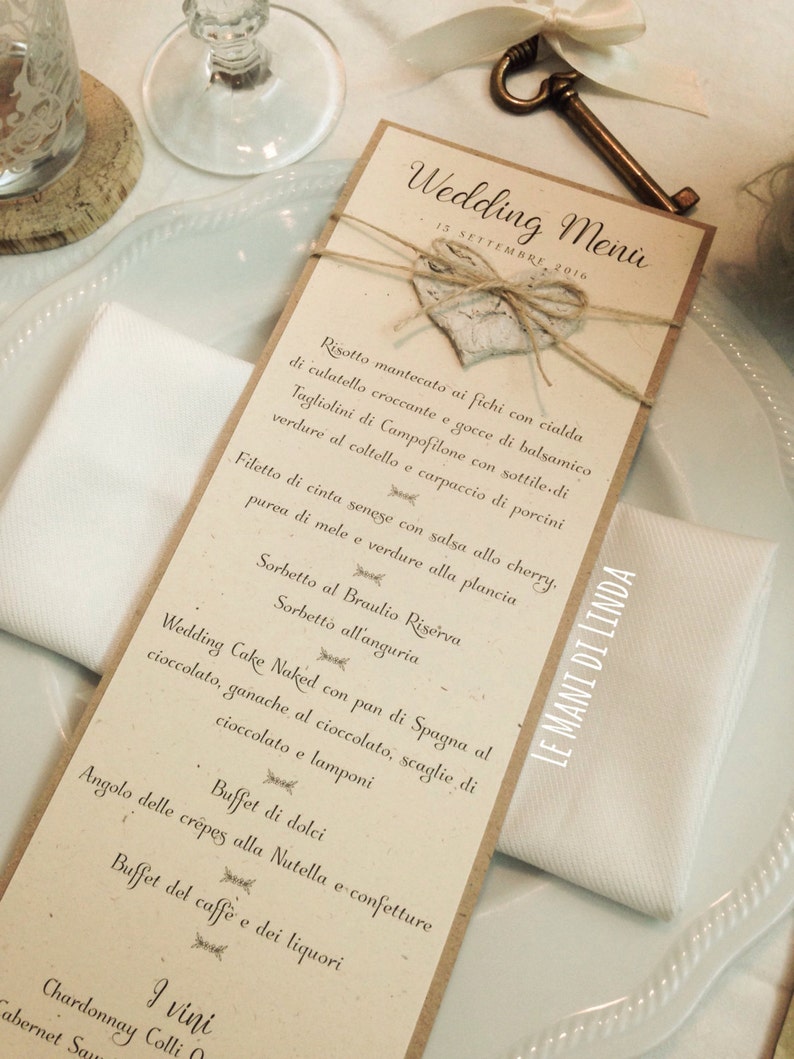 Wedding Menù
15 SETTEMBRE 2016
Risotto mantecato ai fichi con cialda
di culatello croccante e gocce di balsamico
Tagliolini di Campofilone con sottile.di
verdure al coltello e carpaccio di porcini
Filetto di cinta senese con salsa allo cherry,
purea di mele e verdure alla plancia
Sorbetto al Braulio Riserva
Sorbetto all'anguria
Wedding Cake Naked con pan di Spagna al
cioccolato, ganache al cioccolato, scaglie di
cioccolato e lamponi
Buffet di dolci
Angolo delle crêpes alla Nutella e confetture
Buffet del caffè e dei liquori
I vini
Chardonnay Colli
Cabernet
Le Mani di Linda